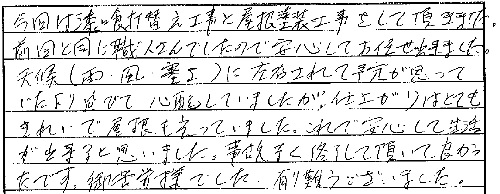 今回は漆喰打替え工事と屋根塗装工事をして頂きました。
前回と同じ職人さんでしたので安心してお任せ出来ました。
天候(雨・風・寒さ)に左右されて予定が思って
いたより延びて心配していましたが、仕上がりはとても
きれいで屋根も光っていました。これで安心して生活
が出来ると思いました。事故なく終了して頂いて良かっ
たです。御苦労様でした。有難うございました。